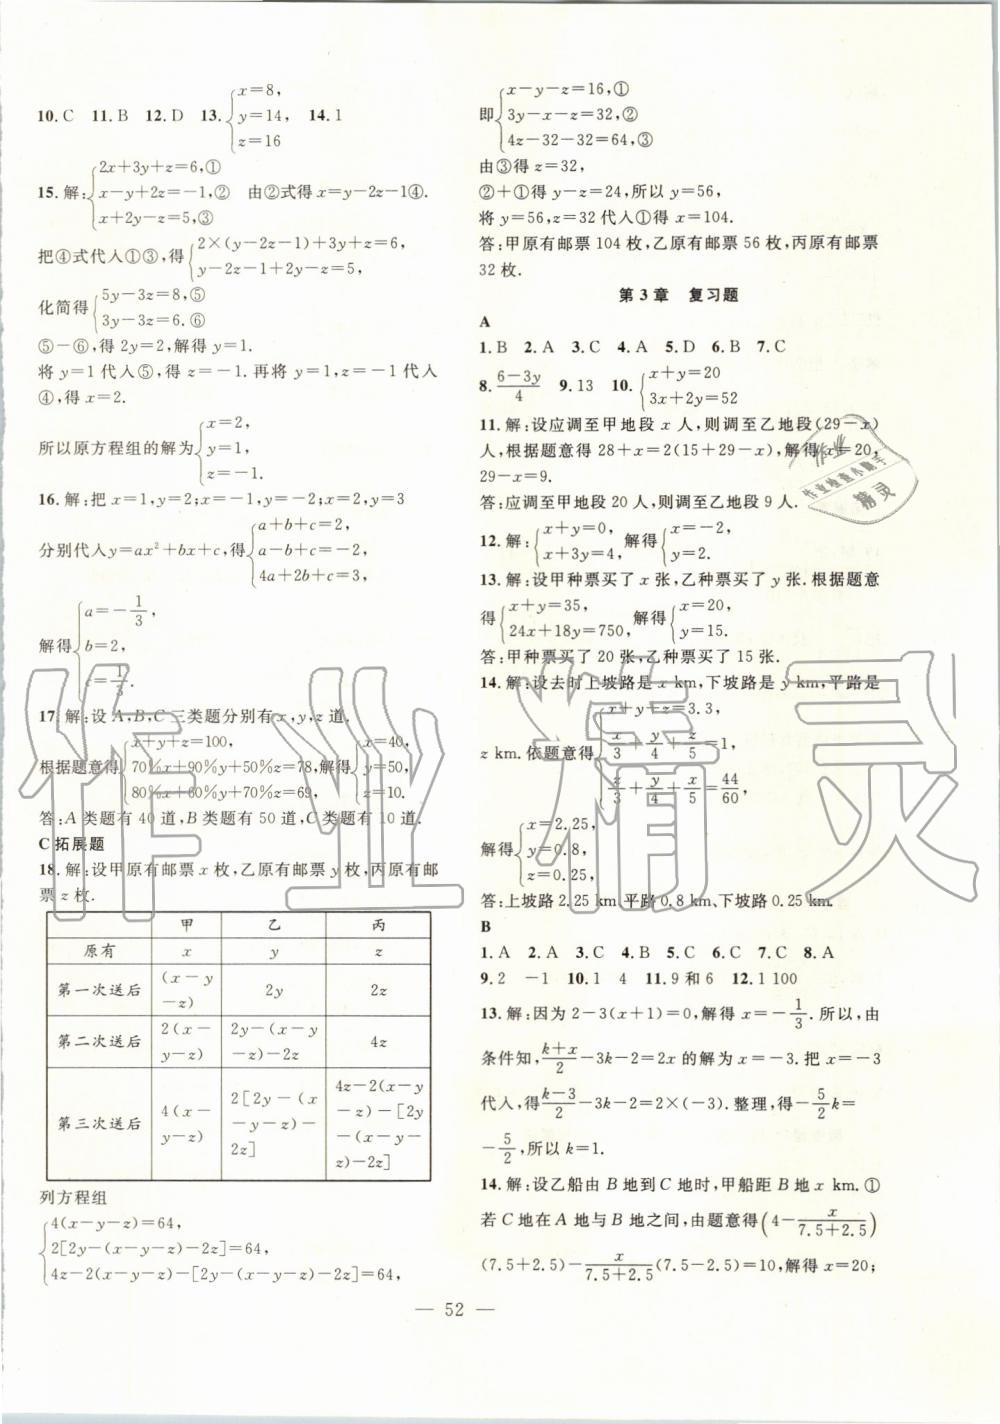 10. C  11. B  12. D  13. {x=8, y=14, z=16  14. 1
15. 解:{2x+3y+z=6,① x-y+2z=-1,② x+2y-z=5,③  由②式得 x=y-2z-1④.
把④式代入①③,得{2×(y-2z-1)+3y+z=6, y-2z-1+2y-z=5,
化简得{5y-3z=8,⑤ 3y-3z=6.⑥
⑤-⑥,得 2y=2,解得 y=1.
将 y=1 代入⑤,得 z=-1. 再将 y=1,z=-1 代入
④,得 x=2.
所以原方程组的解为{x=2, y=1, z=-1.
16. 解:把 x=1,y=2;x=-1,y=-2;x=2,y=3
分别代入 y=ax²+bx+c,得{a+b+c=2, a-b+c=-2, 4a+2b+c=3,
解得{a=-1/3, b=2, c=1/3.
17. 解:设 A,B,C 三类题分别有 x,y,z 道.
根据题意得{x+y+z=100, 70%x+90%y+50%z=78, 80%x+60%y+70%z=69, 解得{x=40, y=50, z=10.
答:A 类题有 40 道,B 类题有 50 道,C 类题有 10 道.
C 拓展题
18. 解:设甲原有邮票 x 枚,乙原有邮票 y 枚,丙原有邮
票 z 枚.
甲 乙 丙
原有 x y z
第一次送后 (x-y-z) 2y 2z
第二次送后 2(x-y-z) 2y-(x-y-z)-2z 4z
第三次送后 4(x-y-z) 2[2y-(x-y-z)-2z] 4z-2(x-y-z)-[2y-(x-y-z)-2z]
列方程组
{4(x-y-z)=64,
2[2y-(x-y-z)-2z]=64,
4z-2(x-y-z)-[2y-(x-y-z)-2z]=64,
即{x-y-z=16,① 3y-x-z=32,② 4z-32-32=64,③
由③得 z=32,
②+①得 y-z=24,所以 y=56,
将 y=56,z=32 代入①得 x=104.
答:甲原有邮票 104 枚,乙原有邮票 56 枚,丙原有邮票
32 枚.
第 3 章  复习题
A
1. B  2. A  3. C  4. A  5. D  6. B  7. C
8. (6-3y)/4  9. 13  10. {x+y=20 3x+2y=52
11. 解:设应调至甲地段 x 人,则调至乙地段(29-x)
人,根据题意得 28+x=2(15+29-x),解得 x=20,
29-x=9.
答:应调至甲地段 20 人,则调至乙地段 9 人.
12. 解:{x+y=0, x+3y=4, 解得{x=-2, y=2.
13. 解:设甲种票买了 x 张,乙种票买了 y 张. 根据题意
得{x+y=35, 24x+18y=750, 解得{x=20, y=15.
答:甲种票买了 20 张,乙种票买了 15 张.
14. 解:设去时上坡路是 x km,下坡路是 y km,平路是
z km. 依题意得{x+y+z=3.3, x/3+y/4+z/5=1, z/3+y/4+x/5=44/60,
解得{x=2.25, y=0.8, z=0.25,
答:上坡路 2.25 km、平路 0.8 km、下坡路 0.25 km.
B
1. A  2. A  3. C  4. B  5. C  6. C  7. C  8. A
9. 2  -1  10. 1  4  11. 9 和 6  12. 1 100
13. 解:因为 2-3(x+1)=0,解得 x=-1/3. 所以,由
条件知,(k+x)/2-3k-2=2x 的解为 x=-3. 把 x=-3
代入,得(k-3)/2-3k-2=2×(-3). 整理,得-5/2k=
-5/2,所以 k=1.
14. 解:设乙船由 B 地到 C 地时,甲船距 B 地 x km. ①
若 C 地在 A 地与 B 地之间,由题意得(4-x/(7.5+2.5))
(7.5+2.5)-x/(7.5+2.5)(7.5-2.5)=10,解得 x=20;
— 52 —
作业精灵
作业检查小助手
精灵